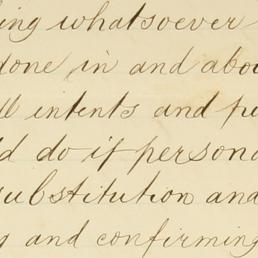 ing whatsoever
done in and abou
ll intents and pu
ld do if persona
substitution and
g and confirming